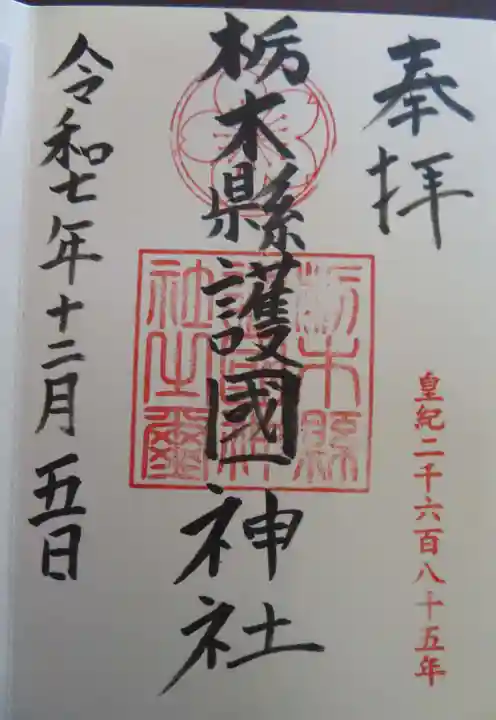 奉拝
皇紀二千六百八十五年
栃木縣護國神社
栃木縣護國神社之璽
令和七年十二月五日